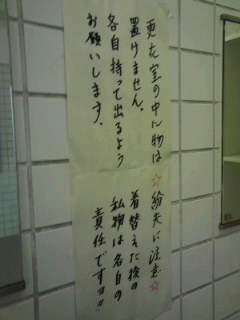 更衣室の中に物は
置けません。
各自持って出るよう
お願いします。
☆紛失に注意☆
着替えた後の
私物は各自の
責任ですヨ!!